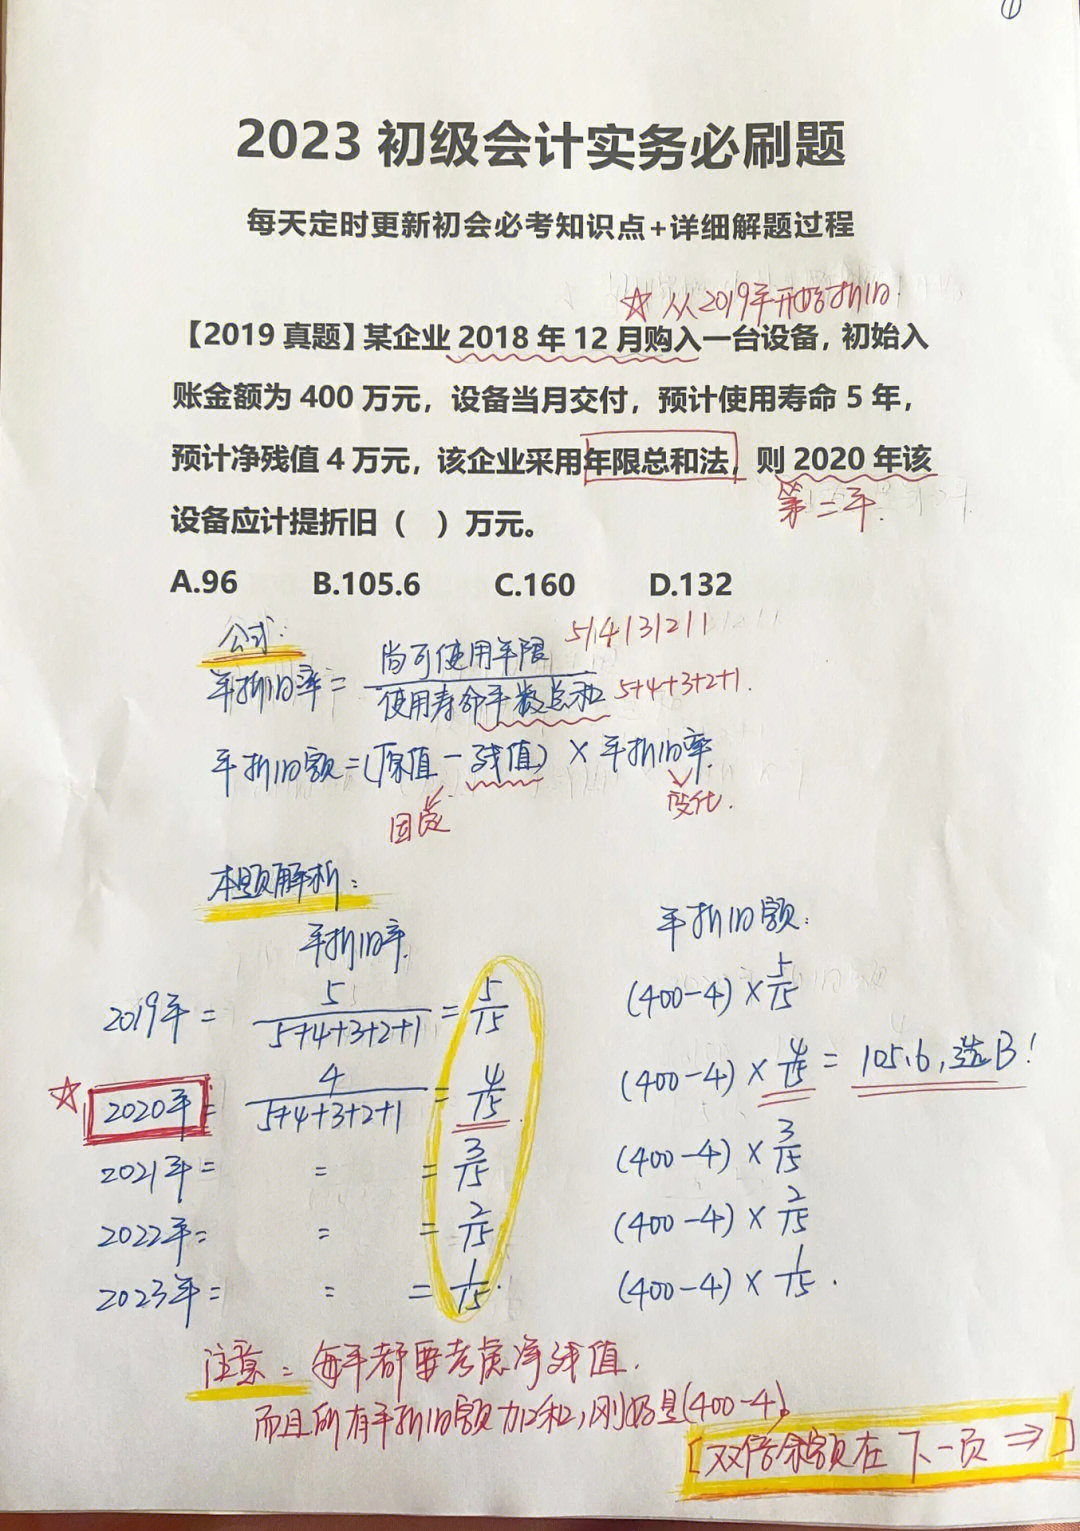 ①
2023 初级会计实务必刷题
每天定时更新初会必考知识点+详细解题过程
☆ 从2019年开始折旧.
【2019 真题】某企业 2018 年 12 月购入一台设备，初始入
账金额为 400 万元，设备当月交付，预计使用寿命 5 年，
预计净残值 4 万元，该企业采用年限总和法，则 2020 年该
第二年.
设备应计提折旧（ ）万元。
A.96 B.105.6 C.160 D.132
公式:
年折旧率 = 尚可使用年限 5/4/3/2/1
使用寿命年数总和 5+4+3+2+1.
年折旧额=(原值-残值) × 年折旧率.
固定 变化.
本题解析:
年折旧率. 年折旧额:
2019年 = 5/(5+4+3+2+1) = 5/15 (400-4) × 5/15
☆ 2020年 = 4/(5+4+3+2+1) = 4/15 (400-4) × 4/15 = 105.6,选B!
2021年 = = = 3/15 (400-4) × 3/15
2022年= = = 2/15 (400-4) × 2/15
2023年= = = 1/15. (400-4) × 1/15.
注意: 每年都要考虑净残值.
而且所有年折旧额加和,刚好是(400-4)
[双倍余额在下一页 ⇒]